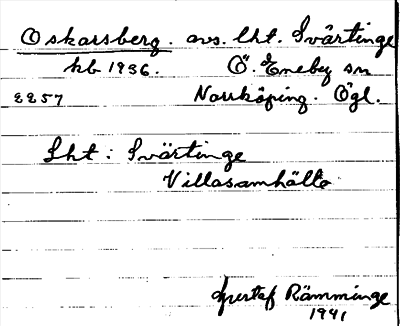 Oskarsberg. avs. lht. Svärtinge
kb 1936. Ö. Eneby sn
2257 Norrköping. Ögl.
Lht : Svärtinge
Villasamhälle
Gustaf Rämminge
1941